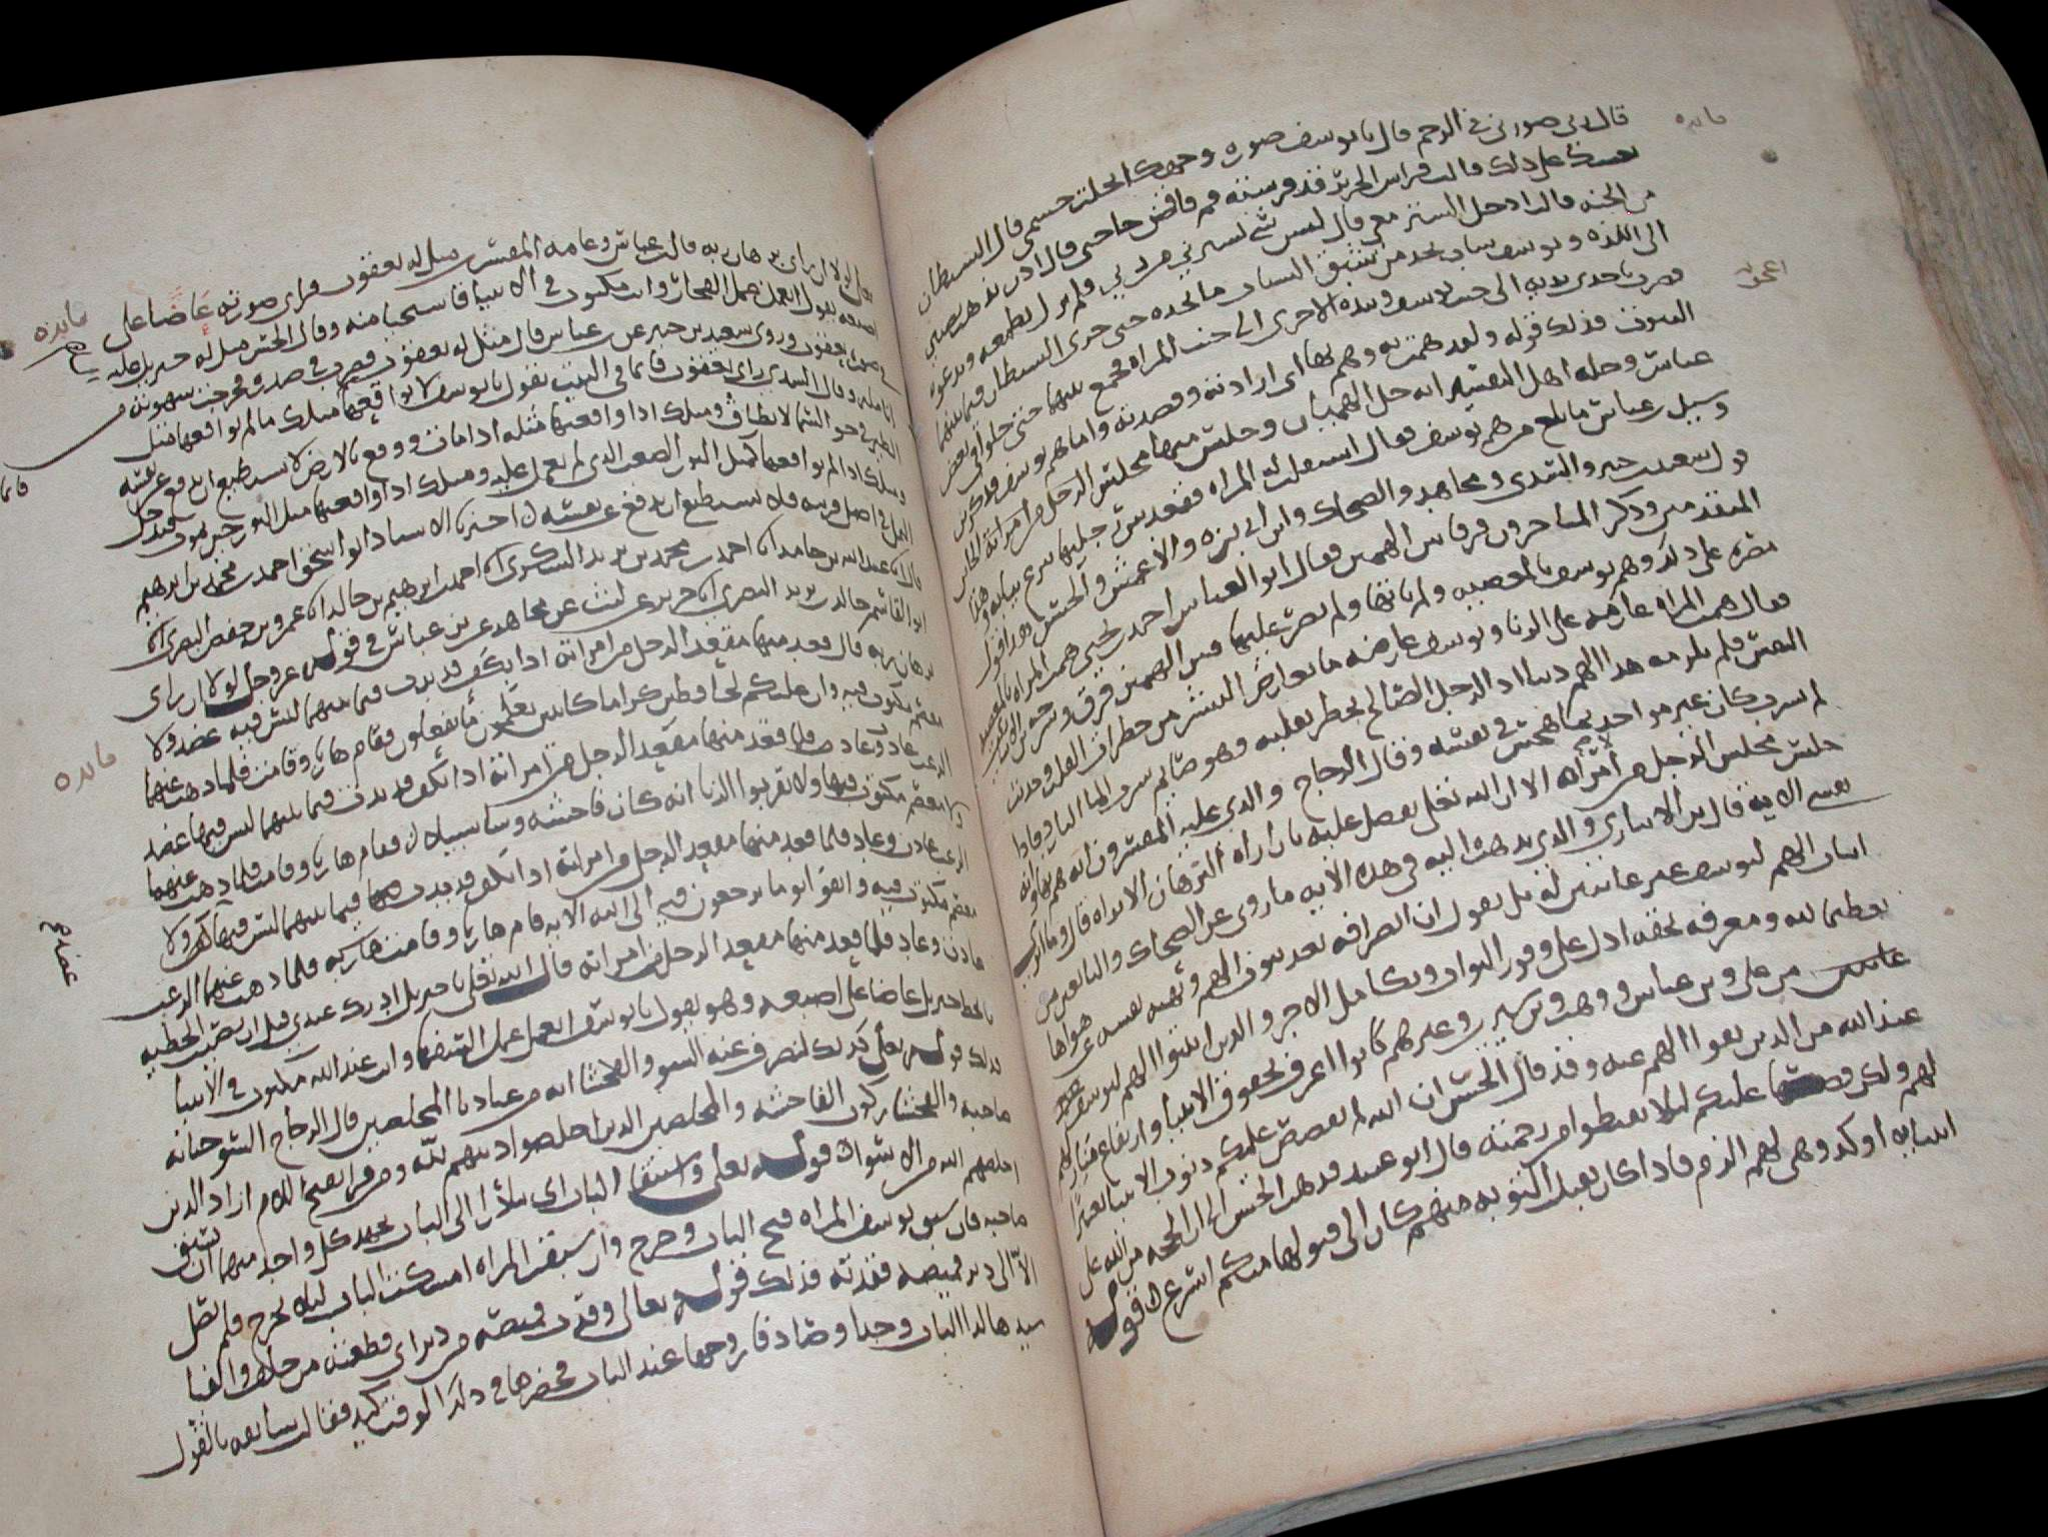 قال ربي صورني في الرحم قال يا يوسف صورة وجهك انحلت جسمي قال الشيطان
يعينك على ذلك قالت فراش الحرير قد فرشته قم فاقض حاجتي قال اذن يذهب نصيبي
من الجنة قالت ادخل الستر معي قال ليس شي يسترني من ربي فلم يزل تطمعه وتدعوه
الى اللذة ويوسف شاب يجد من شبق الشباب ما يجده حتى جرى الشيطان فيما بينهما
فضرب باحدى يديه الى جنب يوسف وبيده الاخرى الى جنب المراة فجمع بينهما حتى خلوا في بعض
البيوت فذلك قوله ولقد همت به وهم بها اي ارادته وقصدته واما هم يوسف فذكر بن
عباس وجلة اهل التفسير انه حل الهميان وجلس منها مجلس الرجل من امراته
وسيل بن عباس ما بلغ من هم يوسف فقال استلقت له المراة فقعد بين رجليها ينزع ثيابه وهذا
قول سعيد بن جبير والسدي ومجاهد والضحاك وابن ابي بزة والاعمش والحسن وهذا قول
المتقدمين وذكر المتاخرون فرقا بين الهمين فقال ابو العباس احمد بن يحيى همت المراة بالمعصية
مصرة على ذلك وهم يوسف بالمعصية ولم ياتها ولم يصر عليها فبين الهمين فرق
فقال همت المراة عازمة على الزنا ويوسف عارضه ما يعارض البشر من خطرات القلب وحديث
النفس فلم يلزمه هذا الهم ذنبا اذ الرجل الصالح يخطر بقلبه وهو صايم شرب الما البارد فاذا
لم يشرب كان غير مواخذ بما هجس في نفسه وقال الزجاج والذي عليه المفسرون انه هم بها وانه
جلس مجلس الرجل من امراته الا ان الله تفضل عليه بان اراه البرهان الا تراه قال وما ابري
نفسي الاية قال بن الانباري والذي نذهب اليه في هذه الاية ما روي عن الصحابة والتابعين من
اثبات الهم ليوسف غير عايبين له بل نقول ان انصرافه بعد ثبوت الهم ونهيه نفسه عن هواها
تعظيما لله ومعرفة بحقه ادل على وفور الثواب وتكامل الاجر والذين اثبتوا الهم ليوسف
من علي وبن عباس ووهب وبن سيرين وغيرهم كانوا اعرف بحقوق الانبيا وارتفاع منازلهم
عند الله من الذين نفوا الهم عنه وقد قال الحسن ان الله لم يقصص عليكم ذنوب الانبيا تعييرا
لهم ولكن قصها عليكم ليلا تقنطوا من رحمته قال ابو عبيد يذهب الحسن الى ان الحجة من الله على
انبيايه اوكد وهي لهم الزم فاذا كان يقبل التوبة منهم كان الى قبولها منكم اسرع قوله
فايدة
تعالى لولا ان راى برهان ربه قال بن عباس وعامة المفسرين مثل له يعقوب فراى صورته عاضا على
اصبعه يقول اتعمل عمل الفجار وانت مكتوب في الانبيا فاستحيا منه وقال الحسن مثل له جبريل عليه
في صورة يعقوب وروى سعيد بن جبير عن بن عباس قال مثل له يعقوب فضرب في صدره فخرجت شهوته من
انامله وقال السدي راى يعقوب قايما في البيت يقول يا يوسف لا تواقعها مثلك ما لم تواقعها مثل
الطير في جو السما لا يطاق ومثلك اذا واقعتها مثله اذا مات ووقع بالارض لا يستطيع ان يدفع عن نفسه
ومثلك اذا لم تواقعها كمثل الثور الصعب الذي لم يعمل عليه ومثلك اذا واقعتها مثل الثور حين يموت فيدخل
النمل في اصل قرنيه فلا يستطيع ان يدفع عن نفسه اخبرنا الاستاذ ابو اسحق احمد بن محمد بن ابرهيم
قال انا عبد الله بن حامد انا احمد بن محمد بن يزيد السكري انا احمد بن ابرهيم بن خالد انا عمرو بن حفص البصري انا
ابو القاسم خالد بن يزيد البصري انا جرير عن ليث عن مجاهد عن بن عباس في قوله عز وجل لولا ان راى
برهان ربه قال قعد منها مقعد الرجل من امراته اذا بكف قد بدت فيما بينهما ليس فيه عضد ولا
معصم مكتوب فيه وان عليكم لحافظين كراما كاتبين يعلمون ما تفعلون فقام هاربا وقامت فلما ذهب عنهما
الرعب عاد وعادت فلما قعد منها مقعد الرجل من امراته اذا بكف قد بدت فيما بينهما ليس فيها عضد
ولا معصم مكتوب فيها ولا تقربوا الزنا انه كان فاحشة وسا سبيلا فقام هاربا وقامت فلما ذهب عنهما
الرعب عادت وعاد فلما قعد منها مقعد الرجل من امراته اذا بكف قد بدت فيما بينهما ليس فيها عضد ولا
معصم مكتوب فيه واتقوا يوما ترجعون فيه الى الله الاية فقام هاربا وقامت هاربة فلما ذهب عنهما الرعب
عادت وعاد فلما قعد منها مقعد الرجل من امراته قال الله تعلى يا جبريل ادرك عبدي قبل ان يصيب الخطية
فانحط جبريل عاضا على اصبعه وهو يقول يا يوسف اتعمل عمل السفها وانت عند الله مكتوب في الانبيا
فذلك قوله تعلى كذلك لنصرف عنه السو والفحشا انه من عبادنا المخلصين قال الزجاج السو خيانة
صاحبه والفحشا ركوب الفاحشة والمخلصين الذين اخلصوا دينهم لله ومن قرا بفتح اللام اراد الذين
اخلصهم الله من الاسوا قوله تعلى واستبقا الباب اي تبادرا الى الباب يجهد كل واحد منهما ان يسبق
صاحبه فان سبق يوسف المراة فتح الباب وخرج وان سبقت المراة امسكت الباب ليلا يخرج فلم تصل
الا الى دبر قميصه فقدته فذلك قوله تعالى وقدت قميصه من دبر اي قطعته من خلف والفيا
سيدها لدا الباب وجدا وصادفا زوجها عند الباب فحضرها في ذلك الوقت كيد فقالت سابقة بالقول
فايدة
فايدة